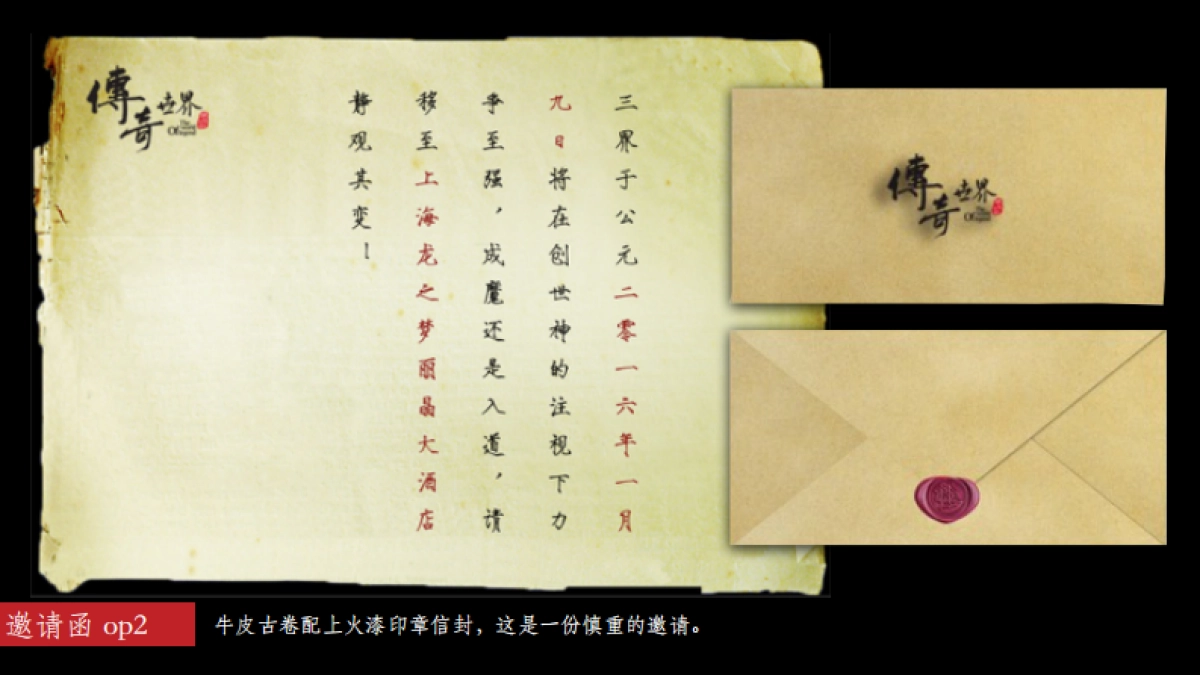 傳奇世界
三界于公元二零一六年一月
九日将在创世神的注视下力
争至强，成魔还是入道，请
移至上海龙之梦丽晶大酒店
静观其变！
傳奇世界
邀请函 op2
牛皮古卷配上火漆印章信封，这是一份慎重的邀请。